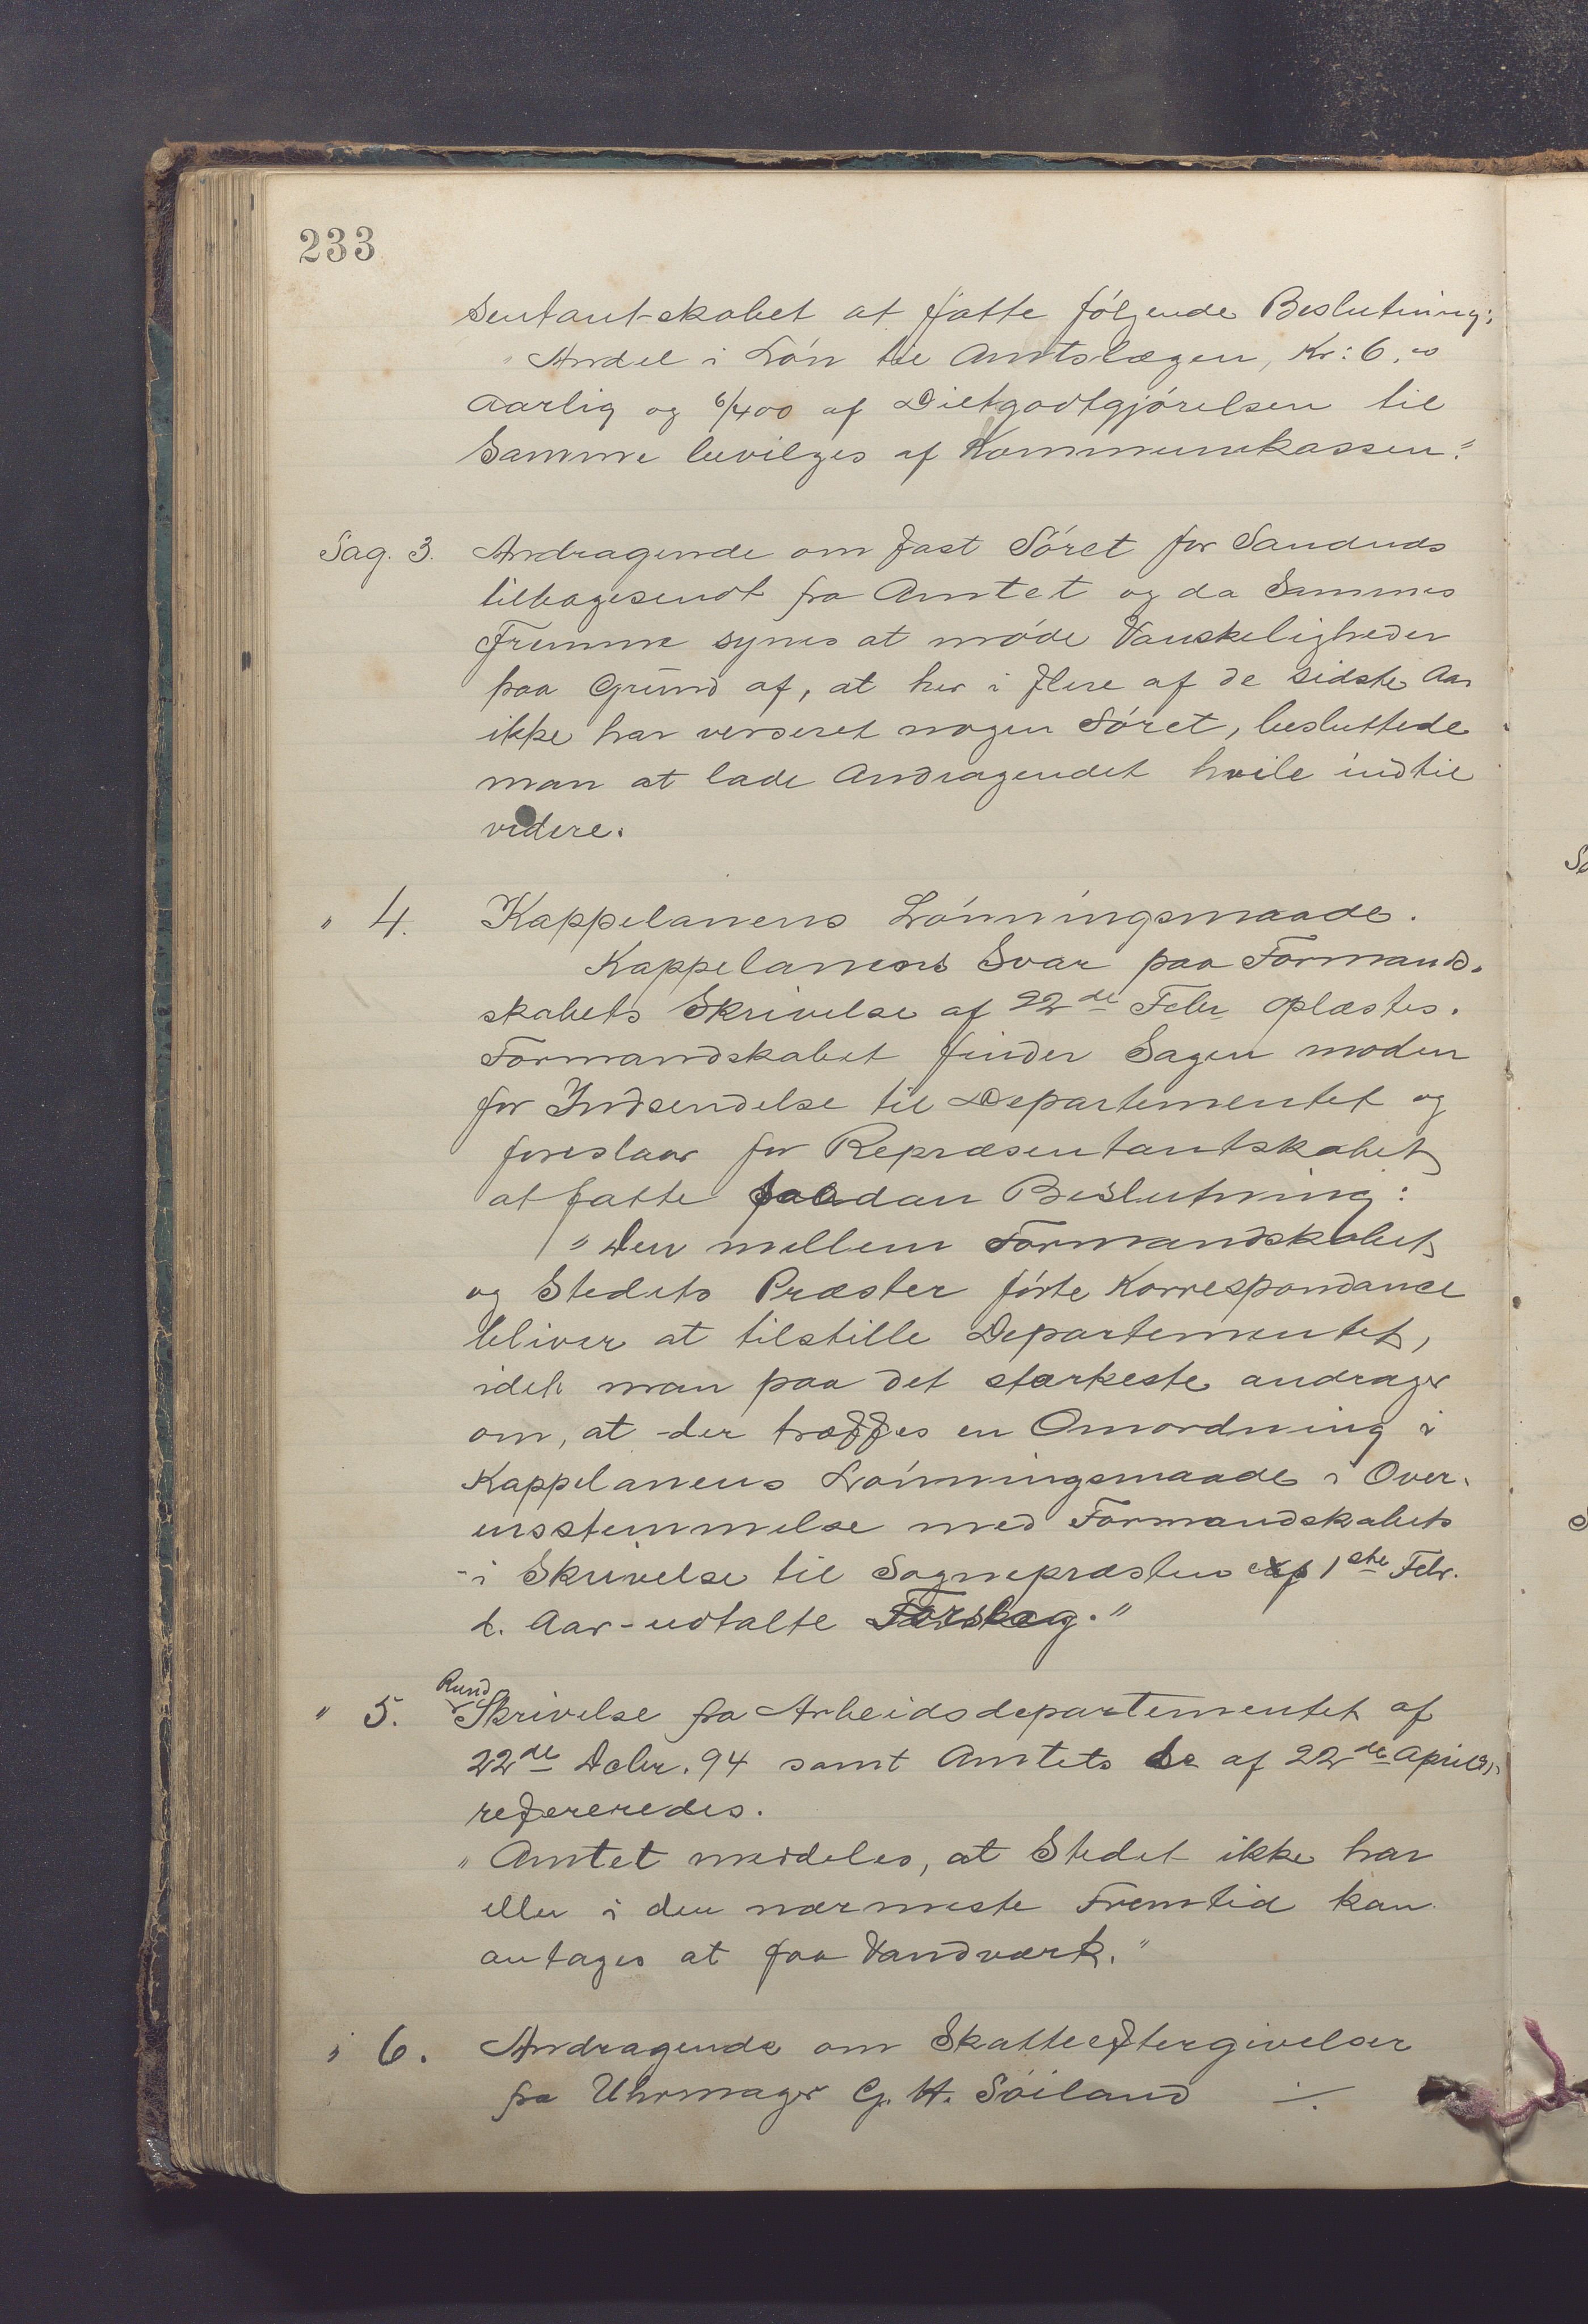 233
sentant-skabet at fatte følgende Beslutning:
"Andel i Løn til Amtslægen, Kr: 6,00
aarlig og 6/400 af Dietgodtgjørelsen til
Samme bevilges af Kommunekassen."
Sag. 3. Andragende om fast Søret for Sandnes
tilbagesendt fra Amtet og da Sammes
Fremme synes at møde Vanskeligheder
paa Grund af, at her i flere af de sidste Aar
ikke har verseret nogen Søret, besluttede
man at lade Andragendet hvile indtil
videre.
" 4. Kappelanens Lønningsmaade.
Kappelanens Svar paa Formand-
skabets Skrivelse af 22de Febr oplæstes.
Formandskabet finder Sagen moden
for Indsendelse til Departementet og
foreslaar for Repræsentantskabet
at fatte saadan Beslutning:
"Den mellem Formandskabet
og Stedets Præster førte Korrespondance
bliver at tilstille Departementet,
idet man paa det stærkeste andrager
om, at der træffes en Omordning i
Kappelanens Lønningsmaade i Over-
ensstemmelse med Formandskabets
-i Skrivelse til Sognepræsten af 1ste Febr.
d. Aar-udtalte Forslag."
" 5. Rund
Skrivelse fra Arbeidsdepartementet af
22de Debr. 94 samt Amtets do af 22de April
refereredes.
"Amtet meddeles, at Stedet ikke har
eller i den nærmeste Fremtid kan
antages at faa Vandværk."
" 6. Andragende om Skatteeftergivelser
fra Uhrmager G. H. Søiland ÷